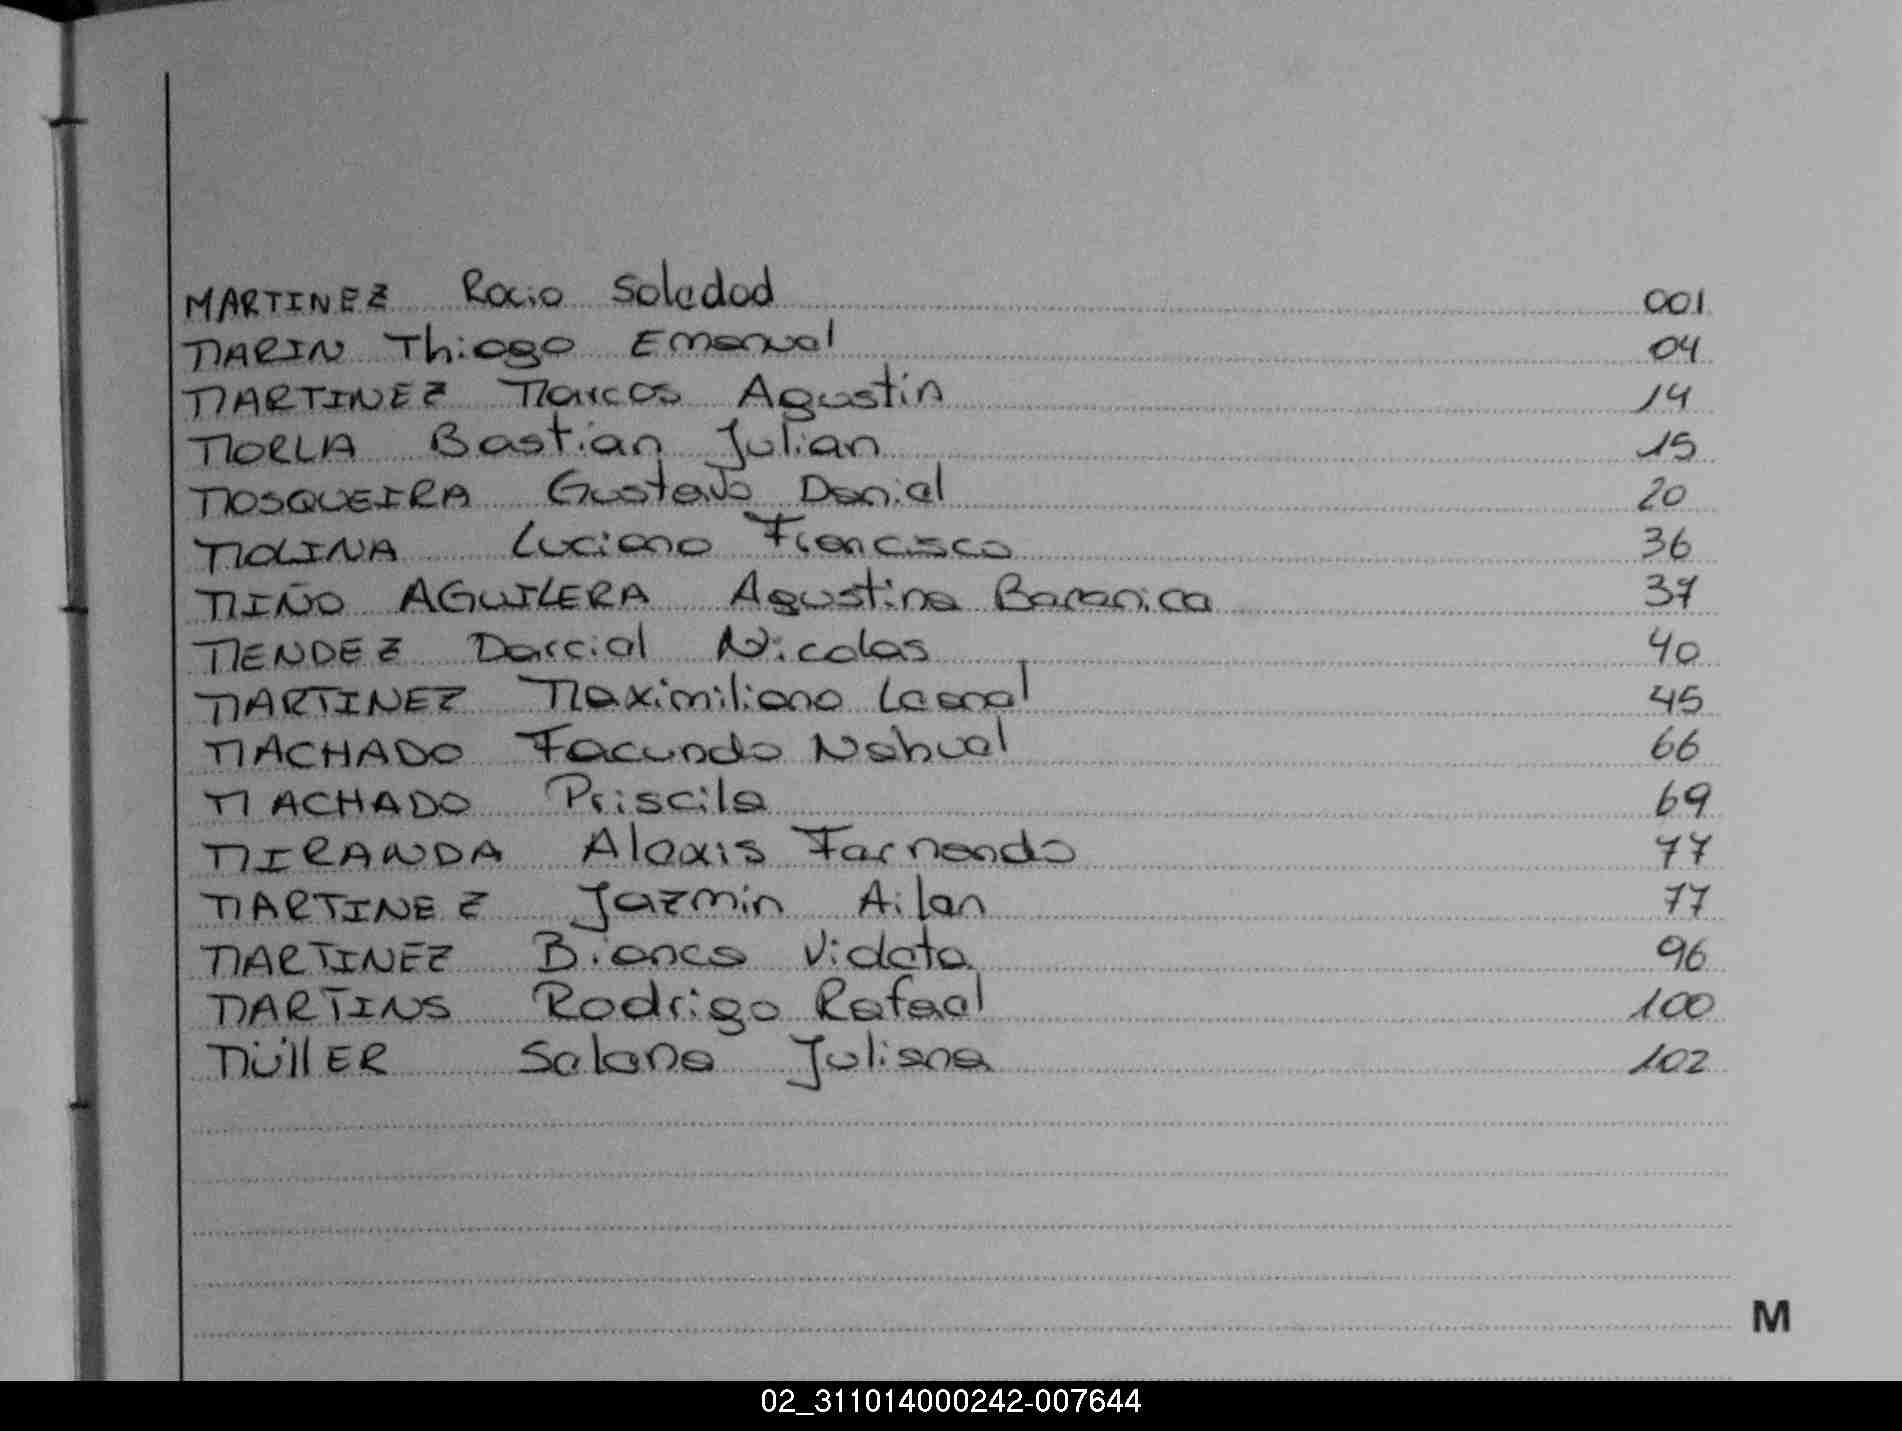 MARTINEZ Rocio Soledad 001
MARIN Thiago Emanuel 04
MARTINEZ Marcos Agustin 14
MORLA Bastian Julian 15
MOSQUEIRA Gustavo Daniel 20
MOLINA Luciano Francisco 36
MIÑO AGUILERA Agustina Berenica 37
MENDEZ Derccial Nicolas 40
MARTINEZ Maximiliano Leonel 45
MACHADO Facundo Nahuel 66
MACHADO Priscila 69
MIRANDA Alexis Fernando 77
MARTINEZ Jazmin Ailen 77
MARTINEZ Bianca Videta 96
MARTINS Rodrigo Rafael 100
MÜllER Solana Juliana 102
M
02_311014000242-007644